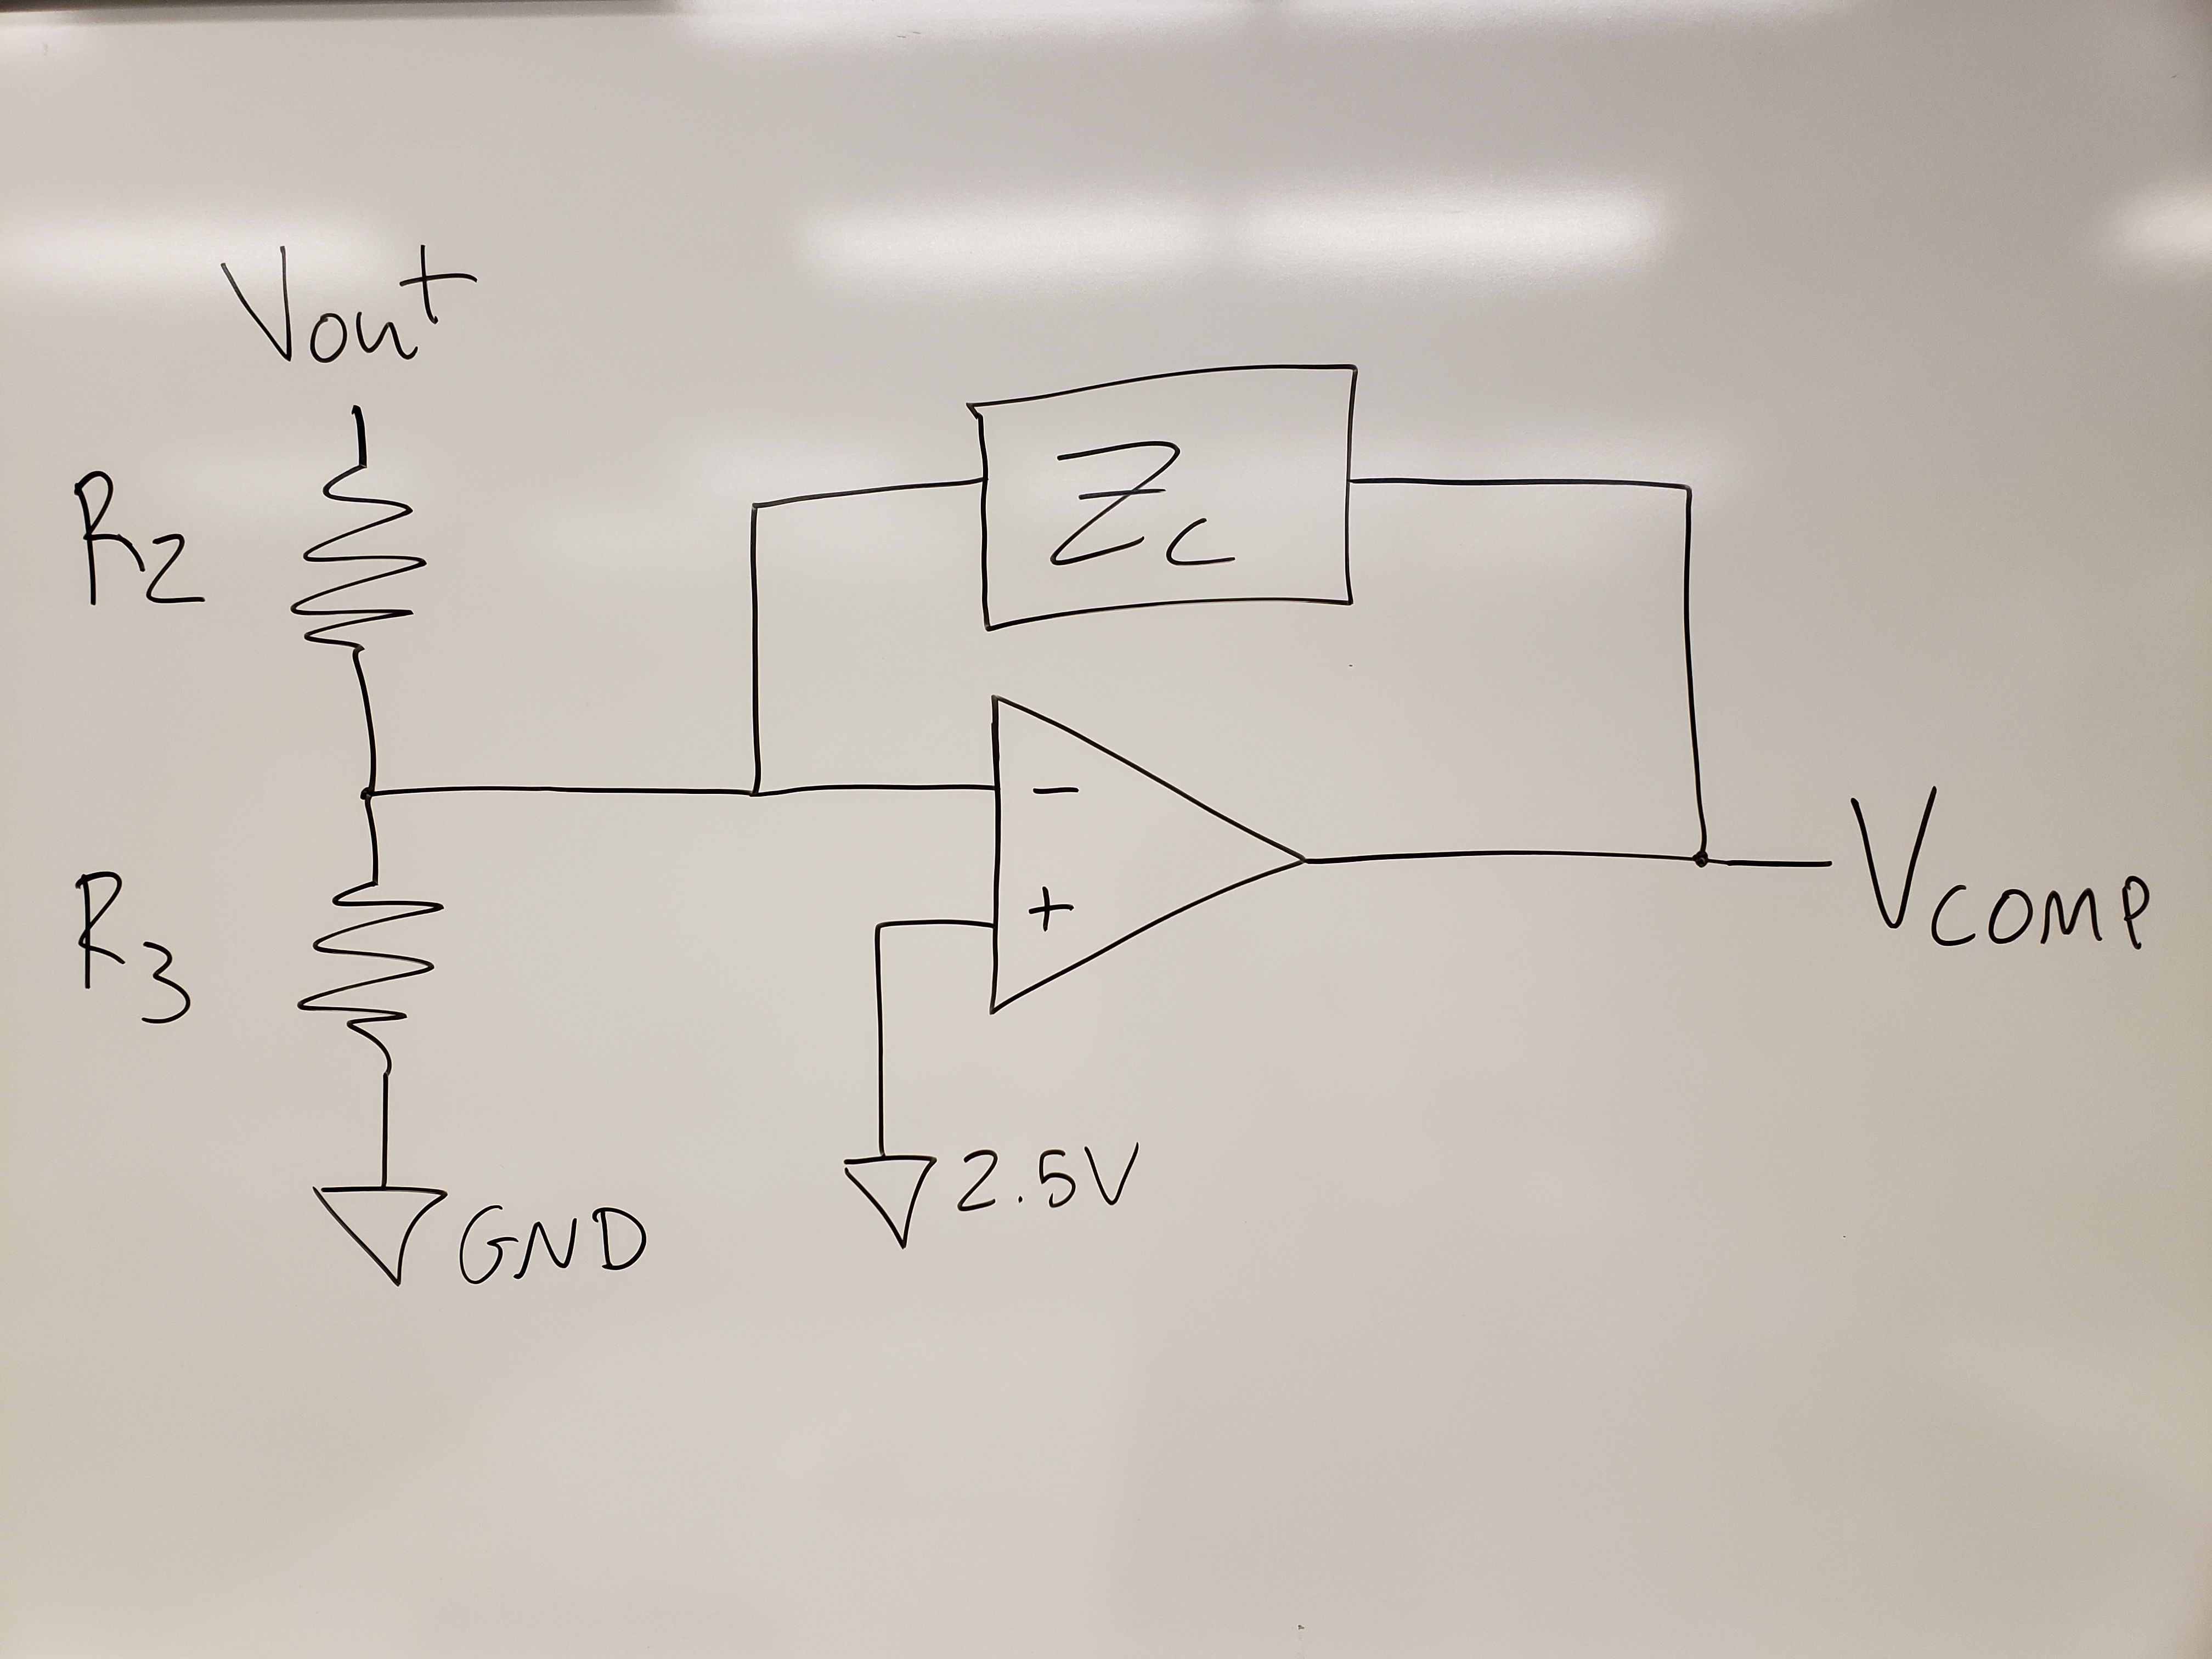 Vout
R2
Zc
−
+
VCOMP
R3
2.5V
GND